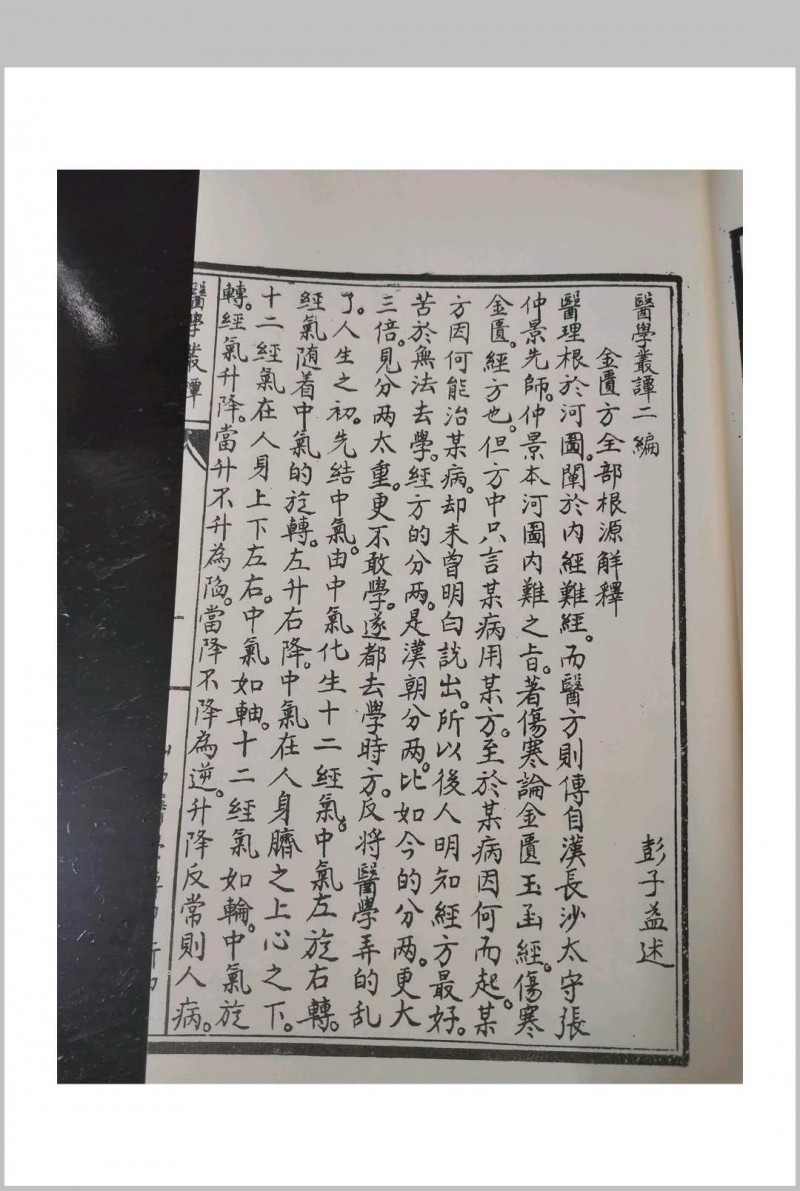 醫學叢譚二編
彭子益述
金匱方全部根源解釋
醫理根於河圖。闡於內經難經。而醫方則傳自漢長沙太守張
仲景先師。仲景本河圖內難之旨。著傷寒論金匱玉函經。傷寒
金匱。經方也。但方中只言某病用某方。至於某病因何而起。某
方因何能治某病。却未曾明白說出。所以後人明知經方最好。
苦於無法去學。經方的分兩。是漢朝分兩。比如今的分兩。更大
三倍。見分兩太重。更不敢學。遂都去學時方。反將醫學弄的乱
了。人生之初。先結中氣。由中氣化生十二經氣。中氣左旋右轉。
經氣随着中氣的旋轉。左升右降。中氣在人身臍之上心之下。
十二經氣在人身上下左右。中氣如軸。十二經氣如輪。中氣旋
轉。經氣升降。當升不升為陷。當降不降為逆。升降反常則人病。
醫學叢譚